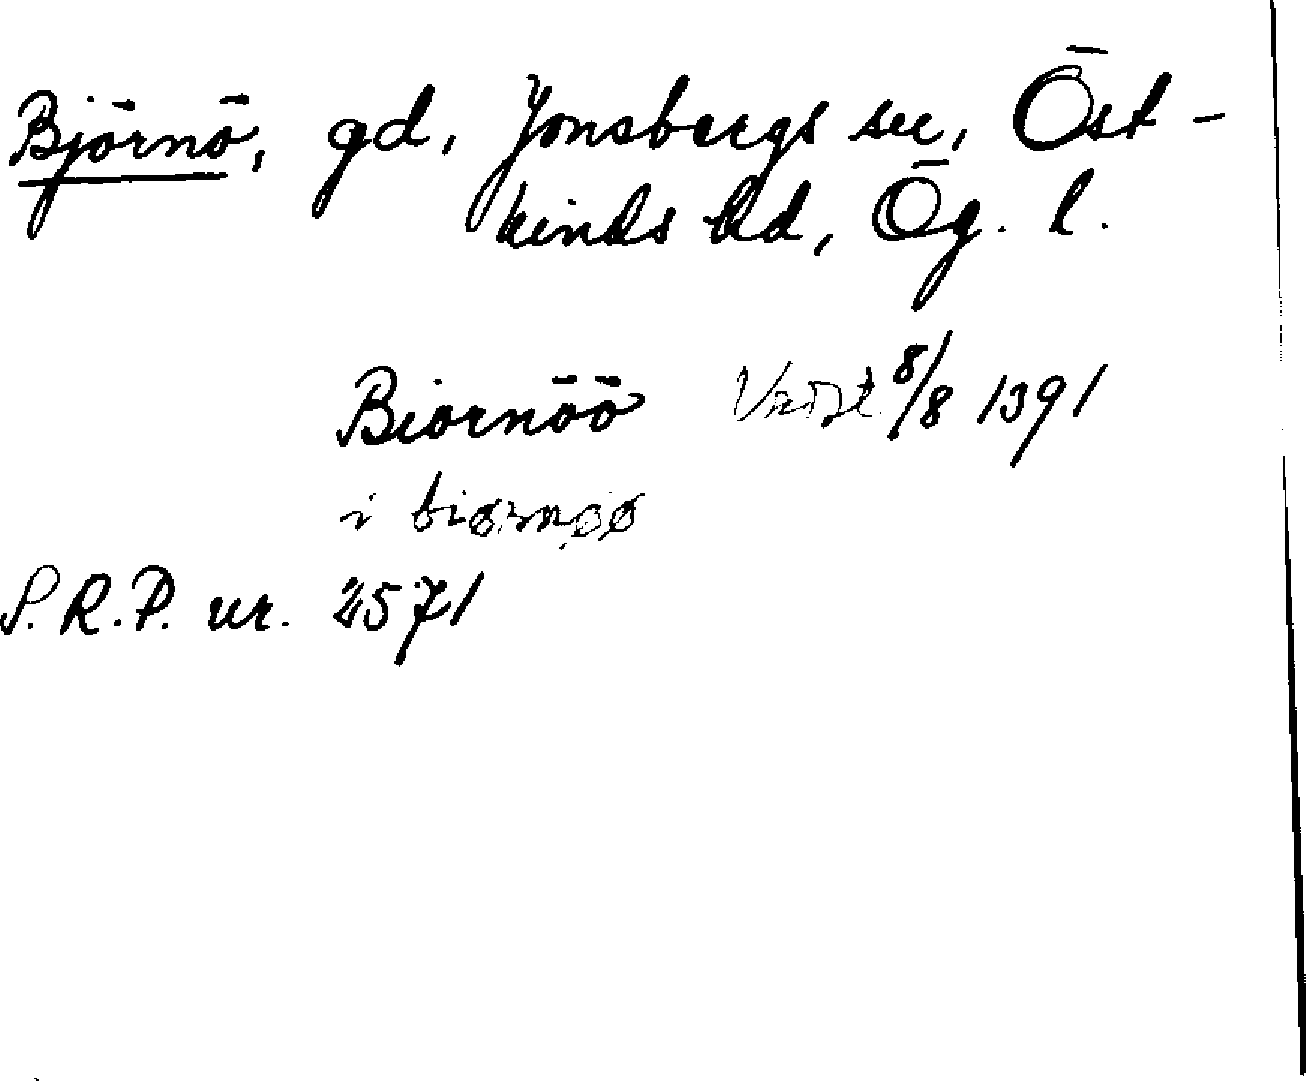 Björnö, gd, Jonsbergs sn, Öst-
kinds hd, Ög. l.
Biornöö 8/8 1391
i biørnøø
S.R.P. nr. 2571